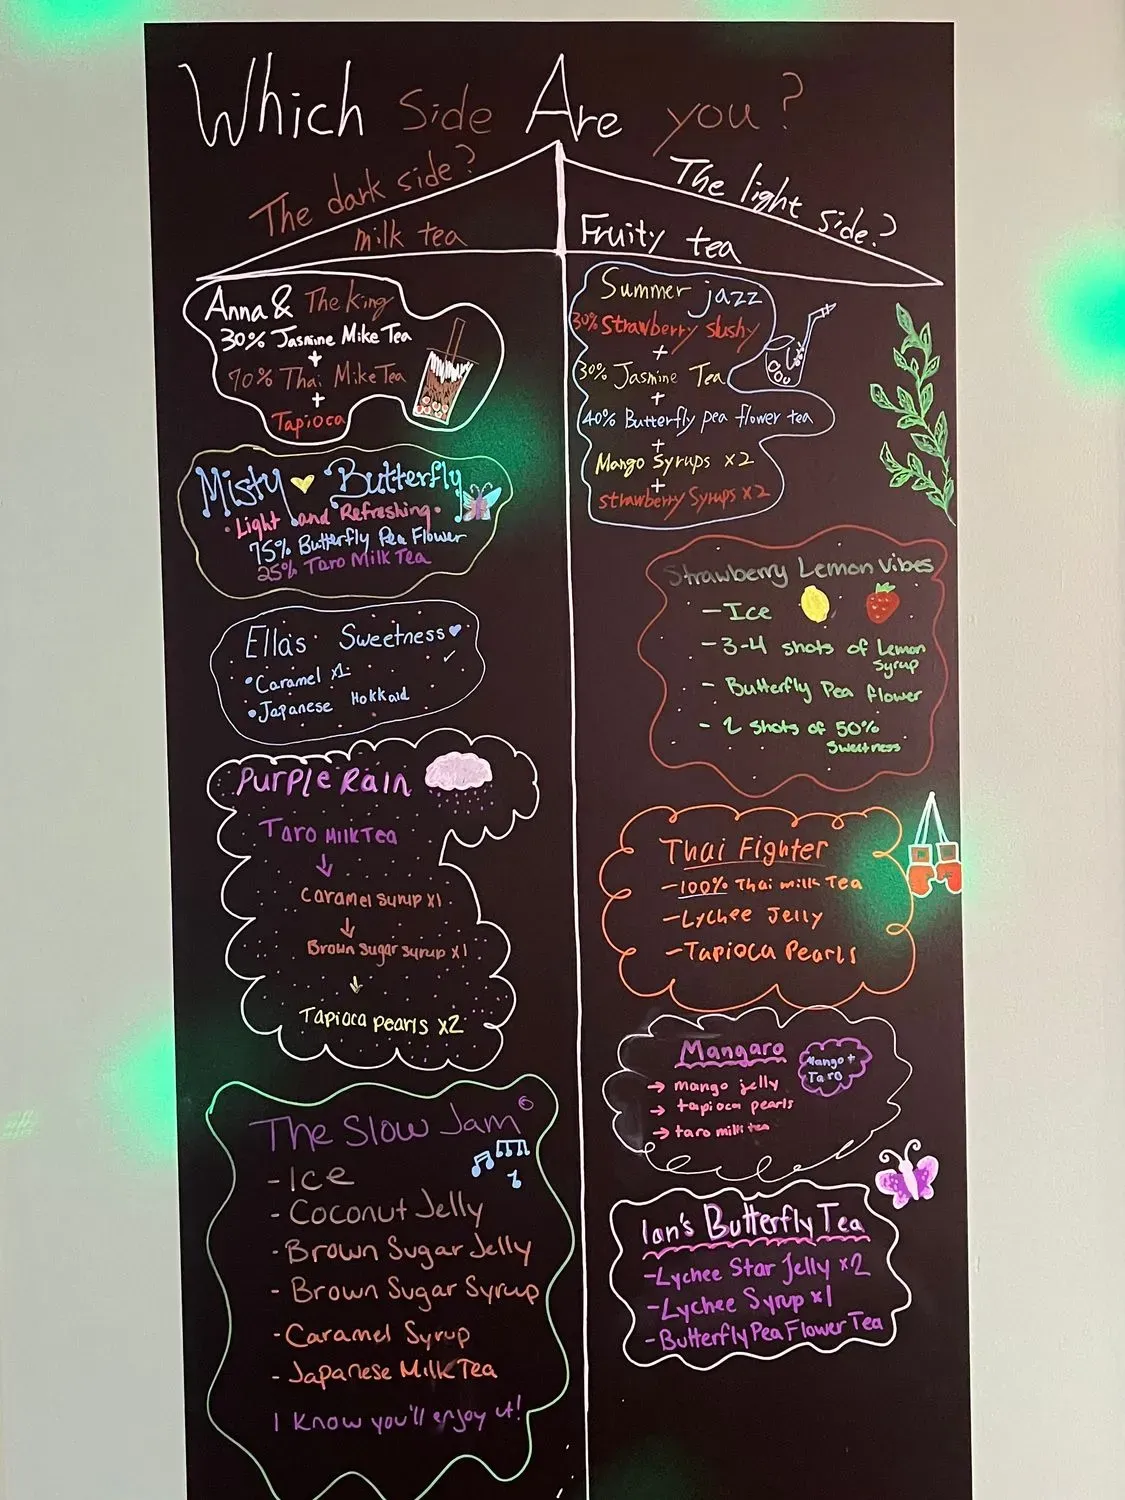 Which Side Are you?
The dark side?
milk tea
Anna & The King
30% Jasmine Mike Tea
+
70% Thai Mike Tea
+
Tapioca
Misty Butterfly
Light and Refreshing
75% Butterfly Pea Flower
25% Taro Milk Tea
Ella's Sweetness
Caramel x1
Japanese Hokkaid
Purple Rain
Taro Milk Tea
Caramel Syrup x1
Brown Sugar Syrup x1
Tapioca pearls x2
The Slow Jam
- Ice
- Coconut Jelly
- Brown Sugar Jelly
- Brown Sugar Syrup
- Caramel Syrup
- Japanese Milk Tea
I know you'll enjoy it!
The light side?
Fruity tea
Summer jazz
30% Strawberry Slushy
+
30% Jasmine Tea
+
40% Butterfly pea flower tea
+
Mango Syrups x2
+
strawberry Syrups x2
Strawberry Lemon Vibes
- Ice
- 3-4 shots of Lemon
Syrup
- Butterfly Pea flower
- 2 shots of 50%
Sweetness
Thai Fighter
- 100% Thai milk Tea
- Lychee Jelly
- Tapioca Pearls
Mangaro
Mango +
Taro
→ mango jelly
→ tapioca pearls
→ taro milk tea
Ian's Butterfly Tea
- Lychee Star Jelly x2
- Lychee Syrup x1
- Butterfly Pea Flower Tea